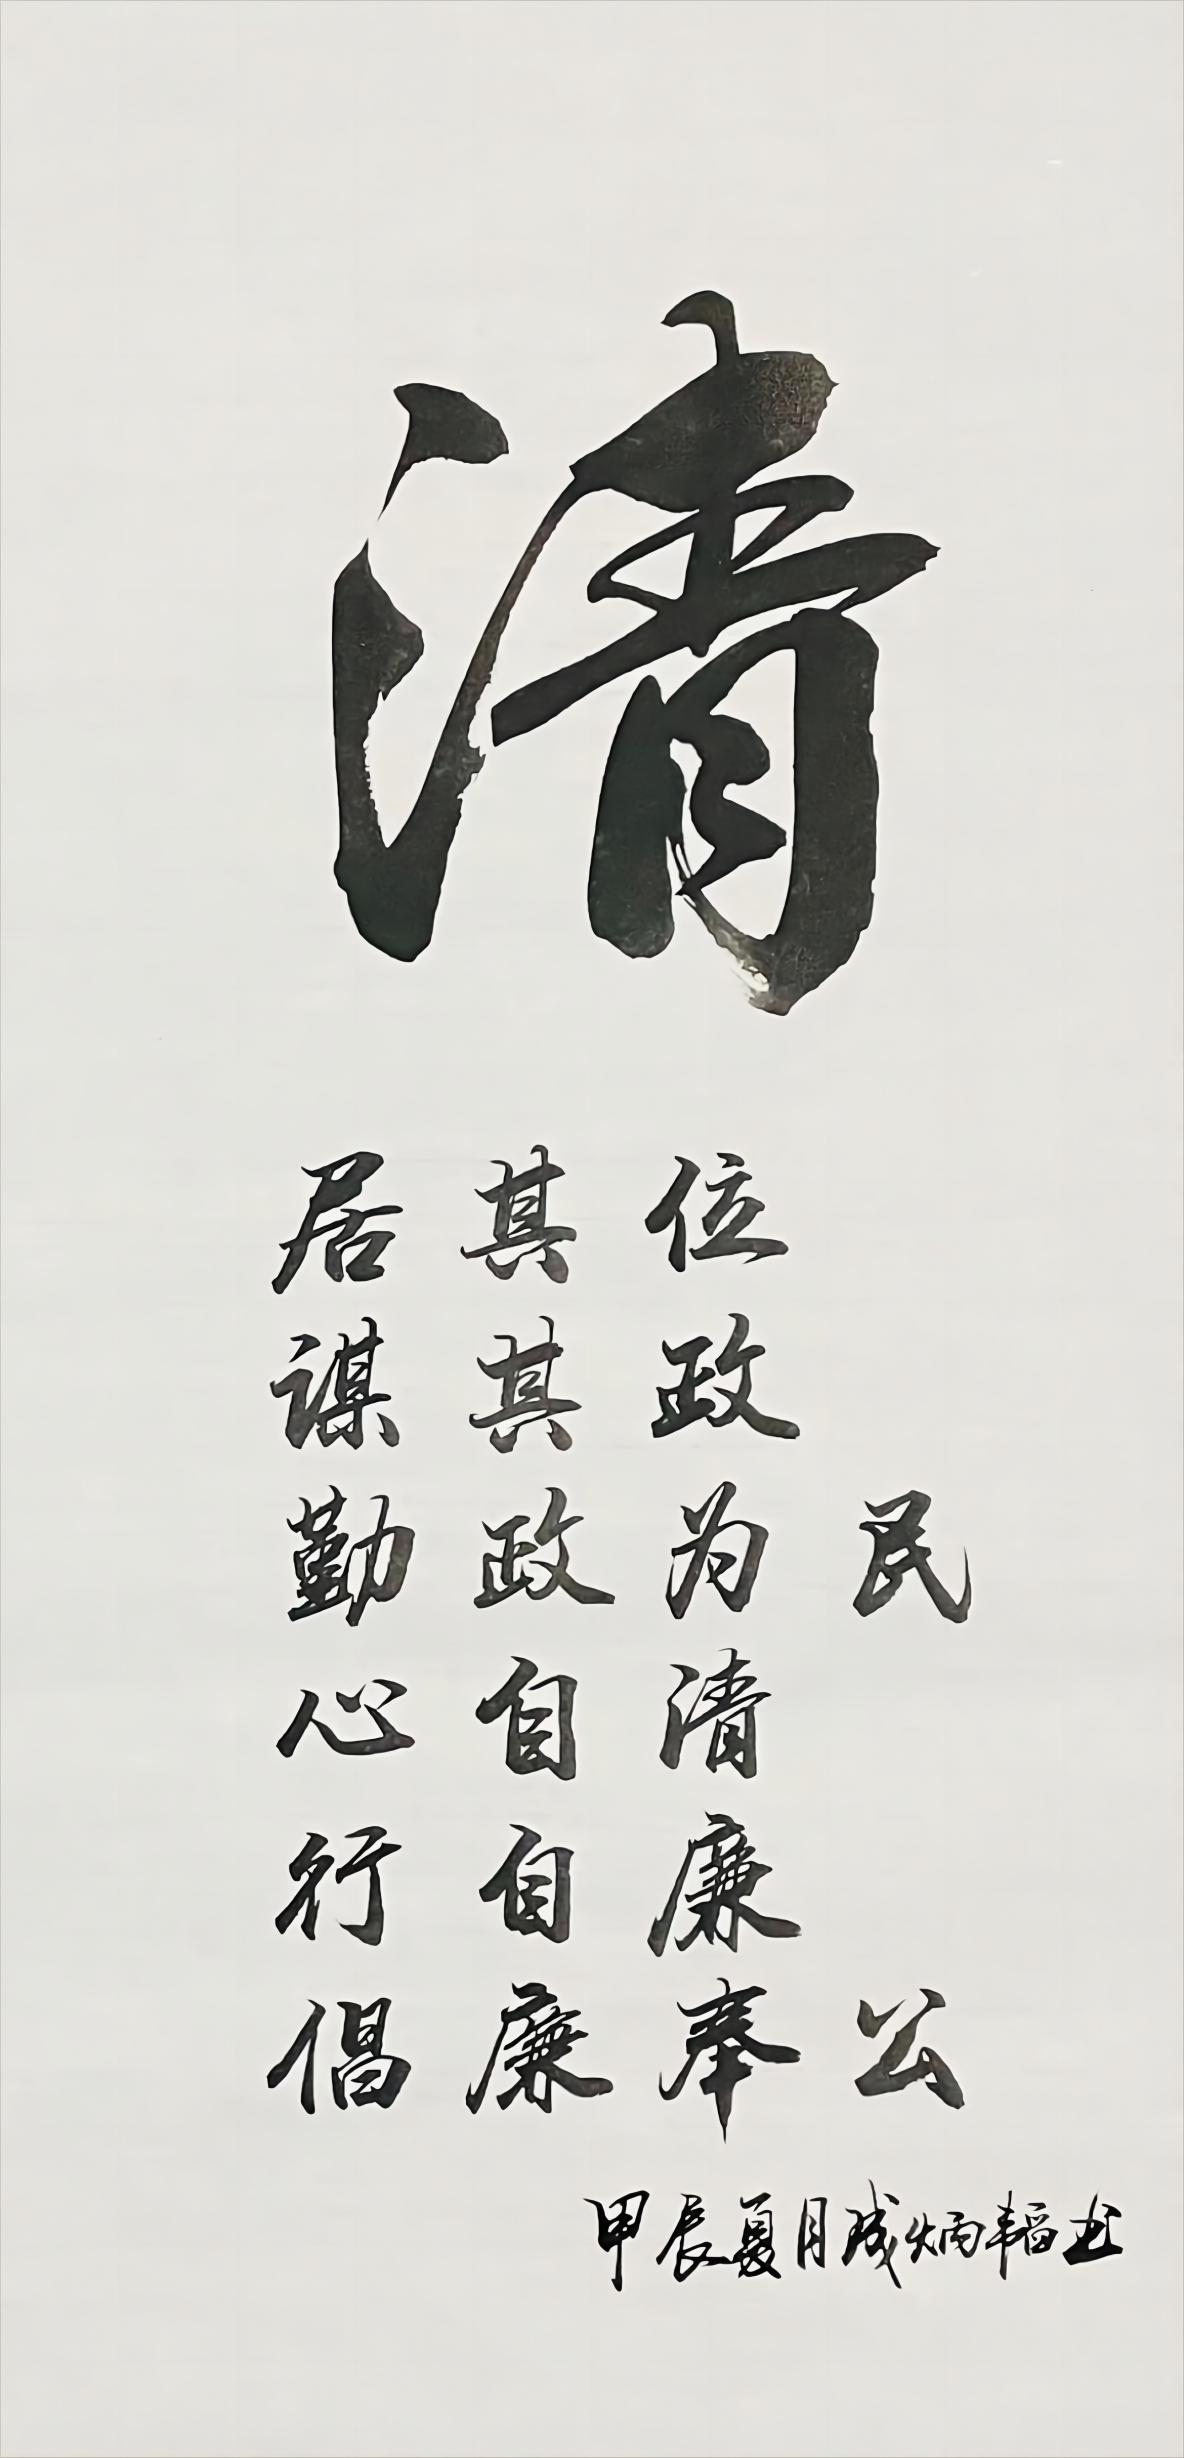 清
居其位
谋其政
勤政为民
心自清
行自廉
倡廉奉公
甲辰夏月 炳韬书